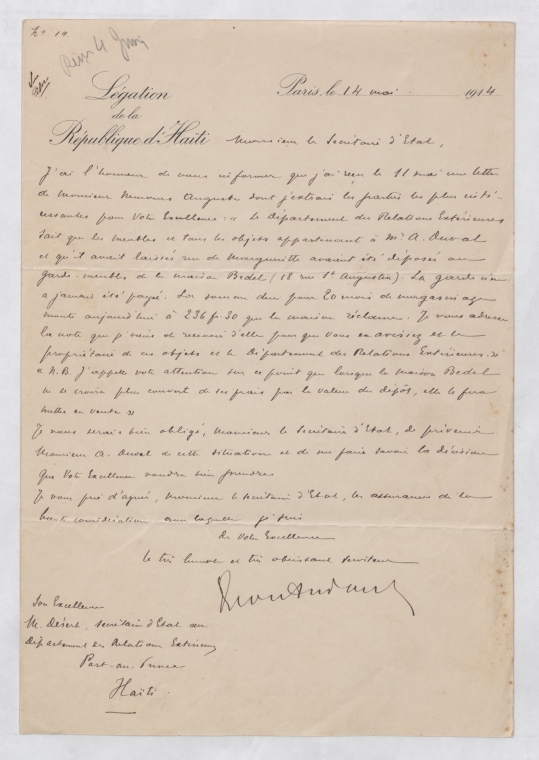 No 19
Reçu 4 Juin
Légation
de la
République d'Haïti
Paris, le 14 mai 1914
Monsieur le Secrétaire d'Etat,
J'ai l'honneur de vous informer que j'ai reçu le 11 mai une lettre
de Monsieur Nemours Auguste dont j'extrais les parties les plus inté-
ressantes pour Votre Excellence : « le Département des Relations Extérieures
sait que les meubles et tous les objets appartenant à Mr A. Duval
et qu'il avait laissés rue de Marguerite avaient été déposés au
garde-meubles de la maison Bedel (18 rue St Augustin). La garde n'en
a jamais été payée. La somme due pour 20 mois de magasinage
monte aujourd'hui à 236 fr. 30 que la maison réclame. Je vous adresse
la note que je viens de recevoir d'elle pour que vous en avisiez et le
propriétaire de ces objets et le Département des Relations Extérieures.
« N.B. J'appelle votre attention sur ce point que lorsque la maison Bedel
ne se croira plus couvert de ses frais par la valeur du dépôt, elle le fera
mettre en vente »
Je vous serais bien obligé, Monsieur le Secrétaire d'Etat, de prévenir
Monsieur A. Duval de cette situation et de me faire savoir la décision
que Votre Excellence voudra bien prendre.
Je vous prie d'agréer, Monsieur le Secrétaire d'Etat, les assurances de la
haute considération avec laquelle je suis
de Votre Excellence
le très humble et très obéissant serviteur
Son Excellence
M. Désert, secrétaire d'Etat au
Département des Relations Extérieures
Port-au-Prince
Haïti